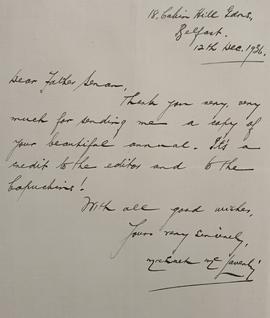 18. Cabin Hill Gdns,
Belfast.
12th Dec. 1936.
Dear Father Senan,
Thank you very, very
much for sending me a copy of
your beautiful annual. It's a
credit to the editor and to the
Capuchins!
With all good wishes,
Yours very sincerely,